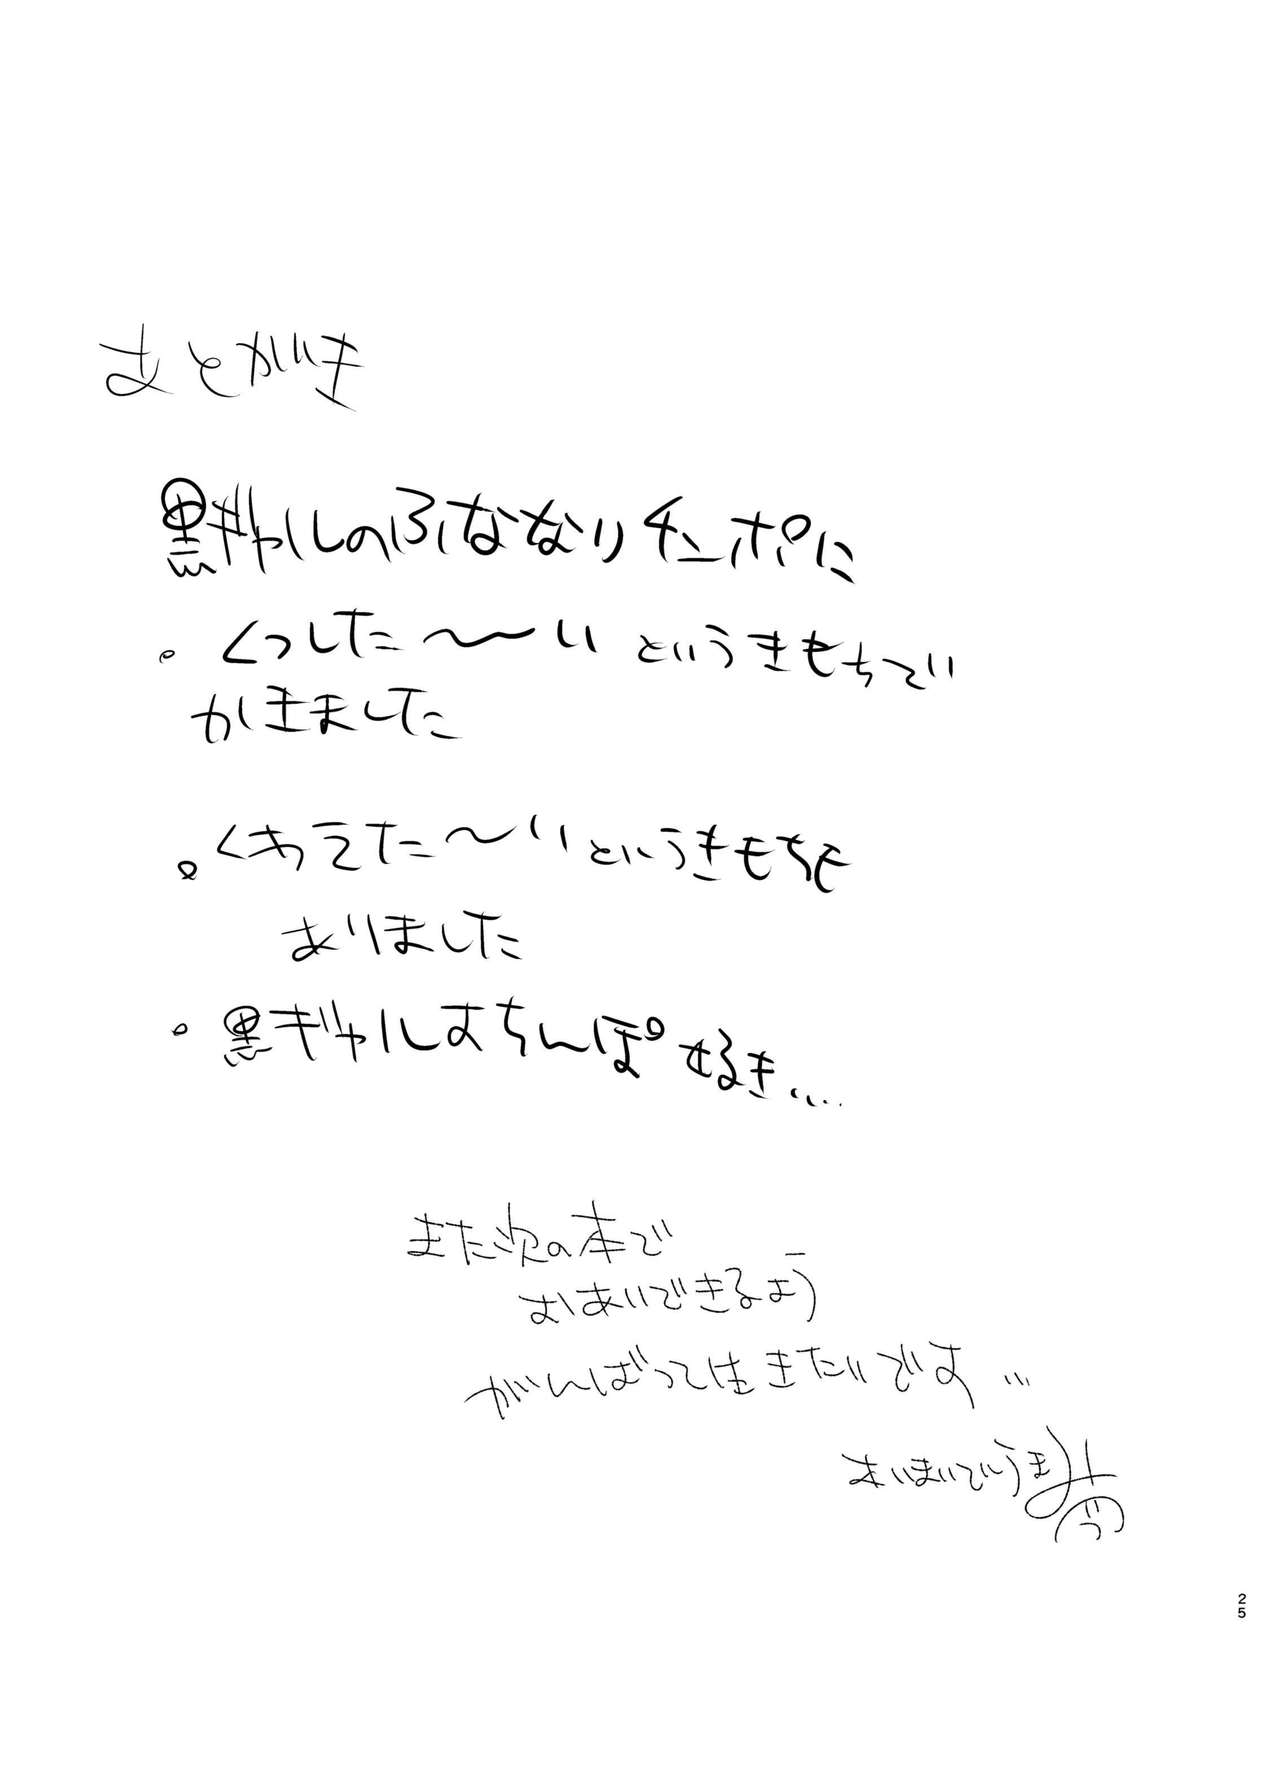 あとがき
黒ギャルのふたなりチンポに
・くっした〜〜いというきもちで
かきました
・くわえた〜いというきもちも
ありました
・黒ギャルおちんぽ好き....
また次の本で
おあいできるよう
がんばって生きたいです…
25